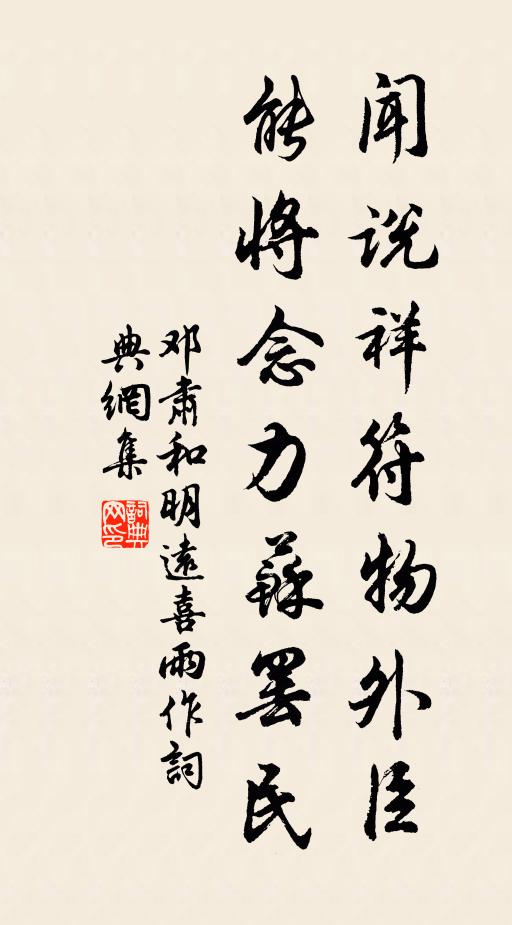 闻说祥符物外臣
能将念力苏罢民
邓肃和明遠喜雨作詞
典網集
詞典网印